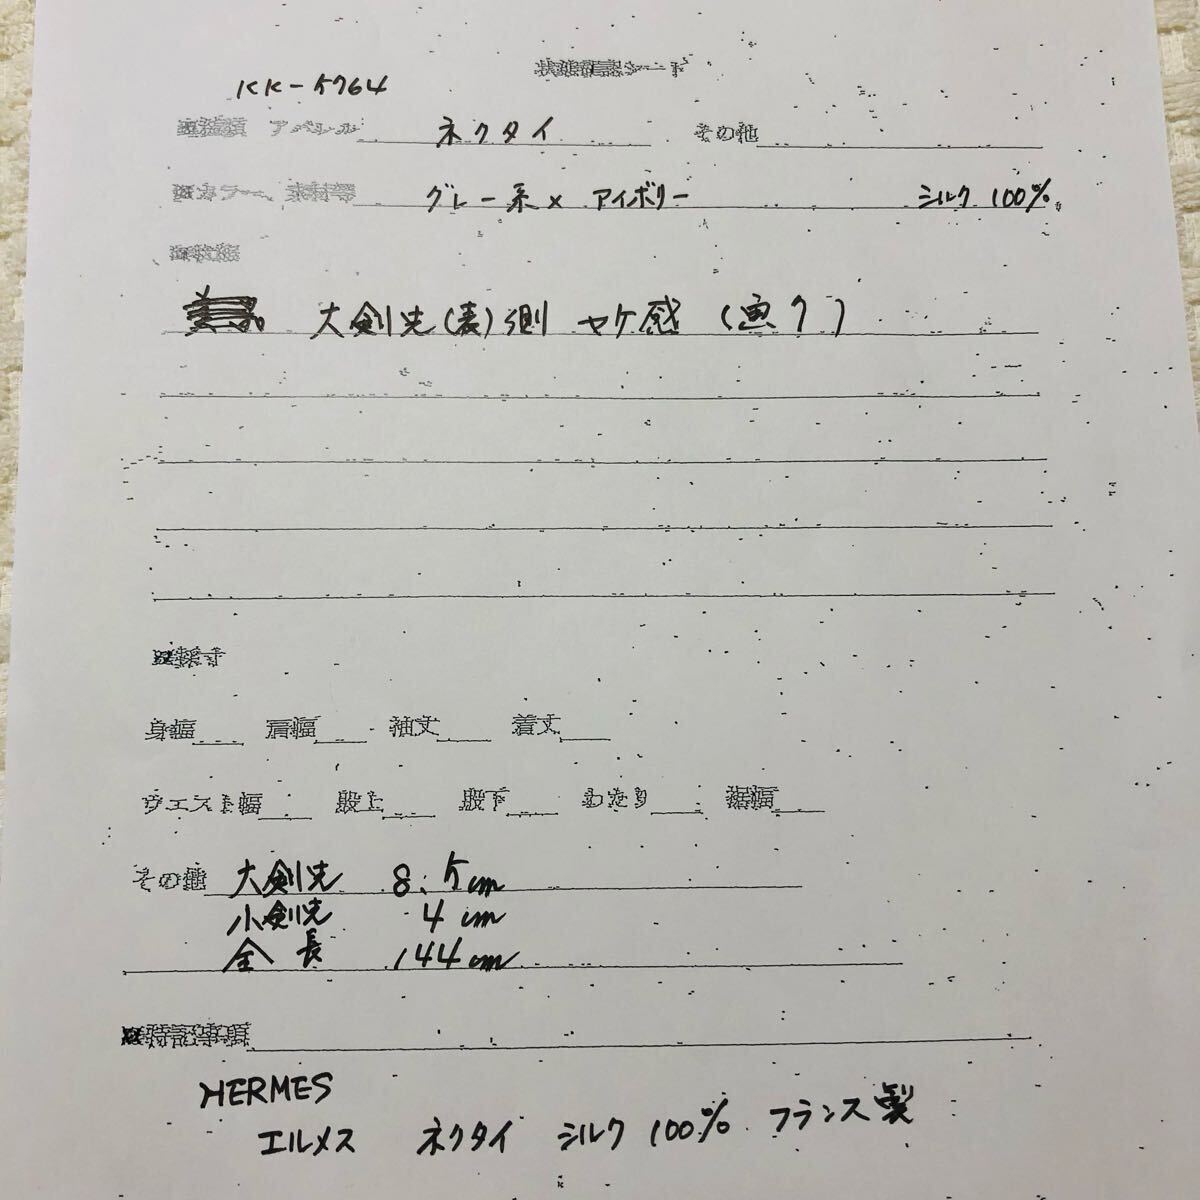 状態確認シート
KK-5764
アパレル ネクタイ その他
カラー、素材等 グレー系 × アイボリー シルク 100%
大剣先(表)側 ヤケ感 (画7)
採寸
身幅 肩幅 袖丈 着丈
ウエスト幅 股上 股下 わたり 裾幅
その他 大剣先 8.5cm
小剣先 4cm
全長 144cm
特記事項
HERMES
エルメス ネクタイ シルク 100% フランス製